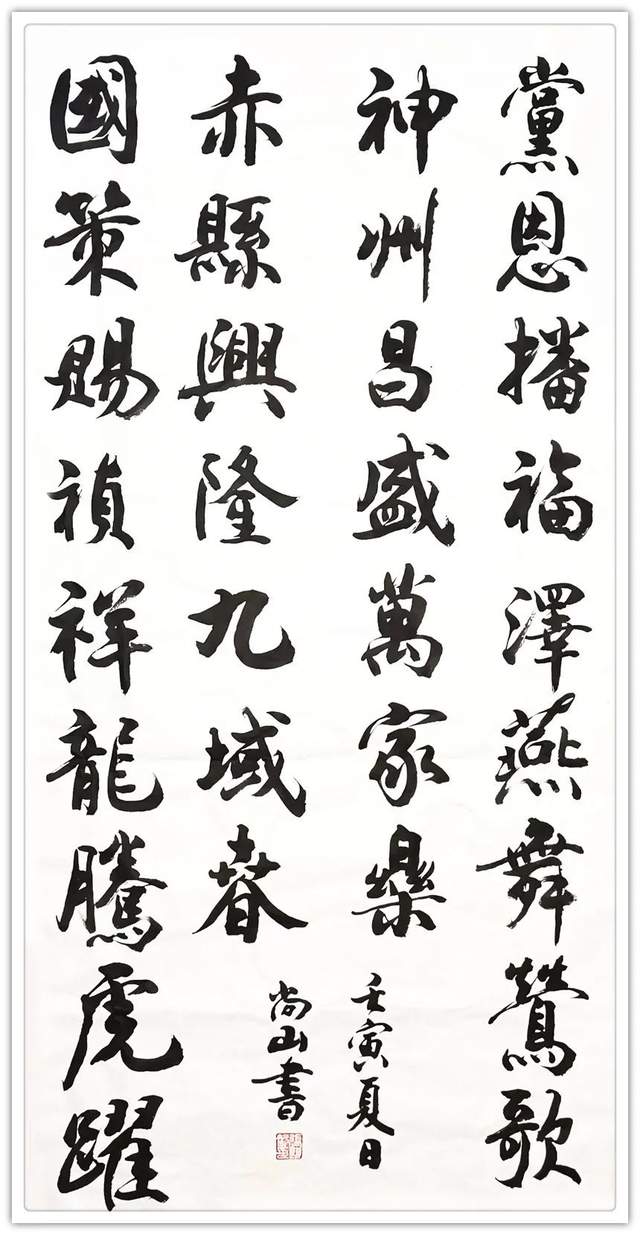 黨恩播福澤燕舞鶯歌
神州昌盛萬家樂
國策賜禎祥龍騰虎躍
赤縣興隆九域春
壬寅夏日
尚山書